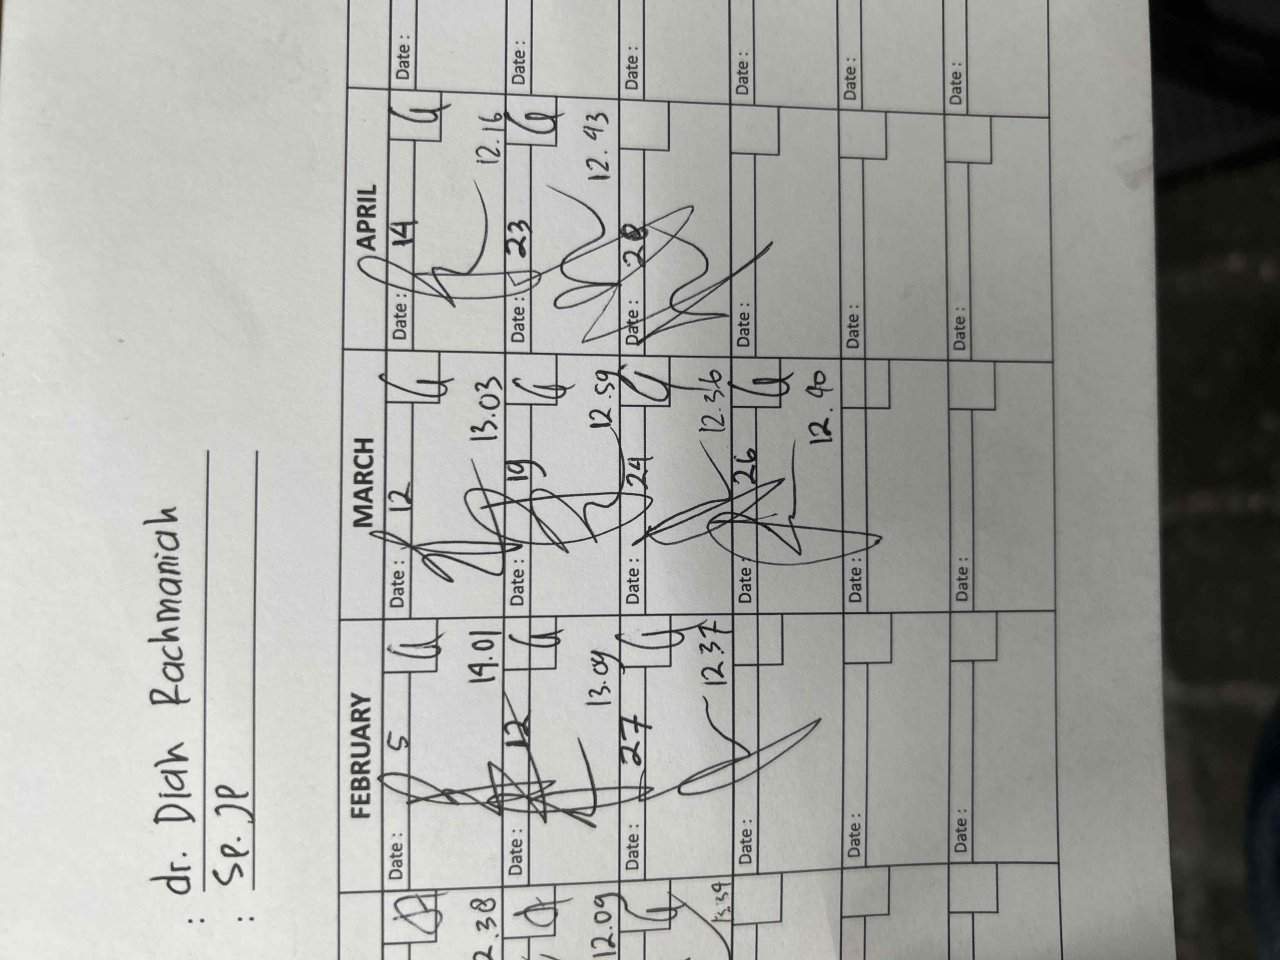 : dr. Diah Rachmaniah
: Sp. JP
FEBRUARY MARCH APRIL
Date : 5 Date : 12 Date : 14 Date :
2.38 14.01 13.03 12.16
Date : 12 Date : 19 Date : 23 Date :
12.09 13.09 12.59 12.43
Date : 27 Date : 24 Date : 28 Date :
12.37 12.36
Date : Date : 26 Date : Date :
12.40
Date : Date : Date : Date :
Date : Date : Date : Date :